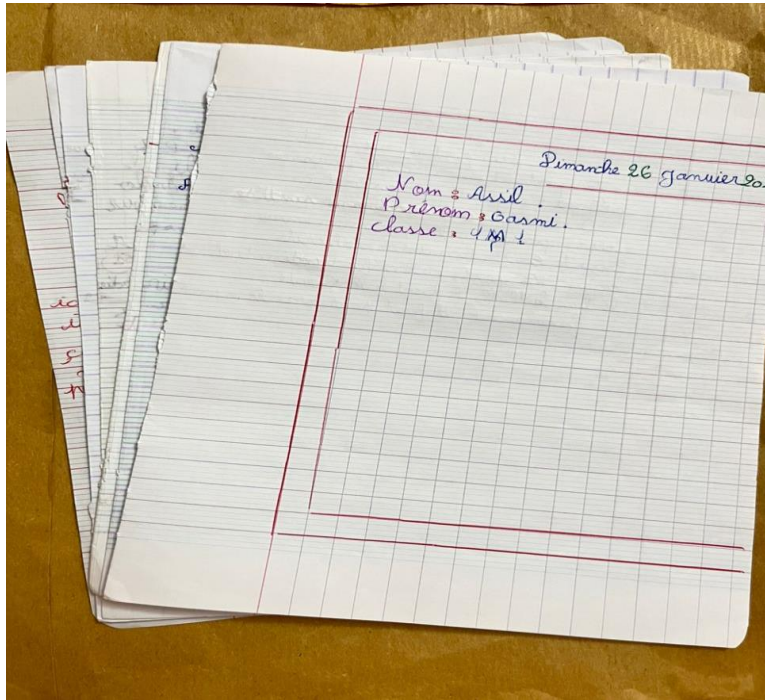 Dimanche 26 Janvier 20
Nom : Assil .
Prénom : Gasmi .
Classe : 4 M 1